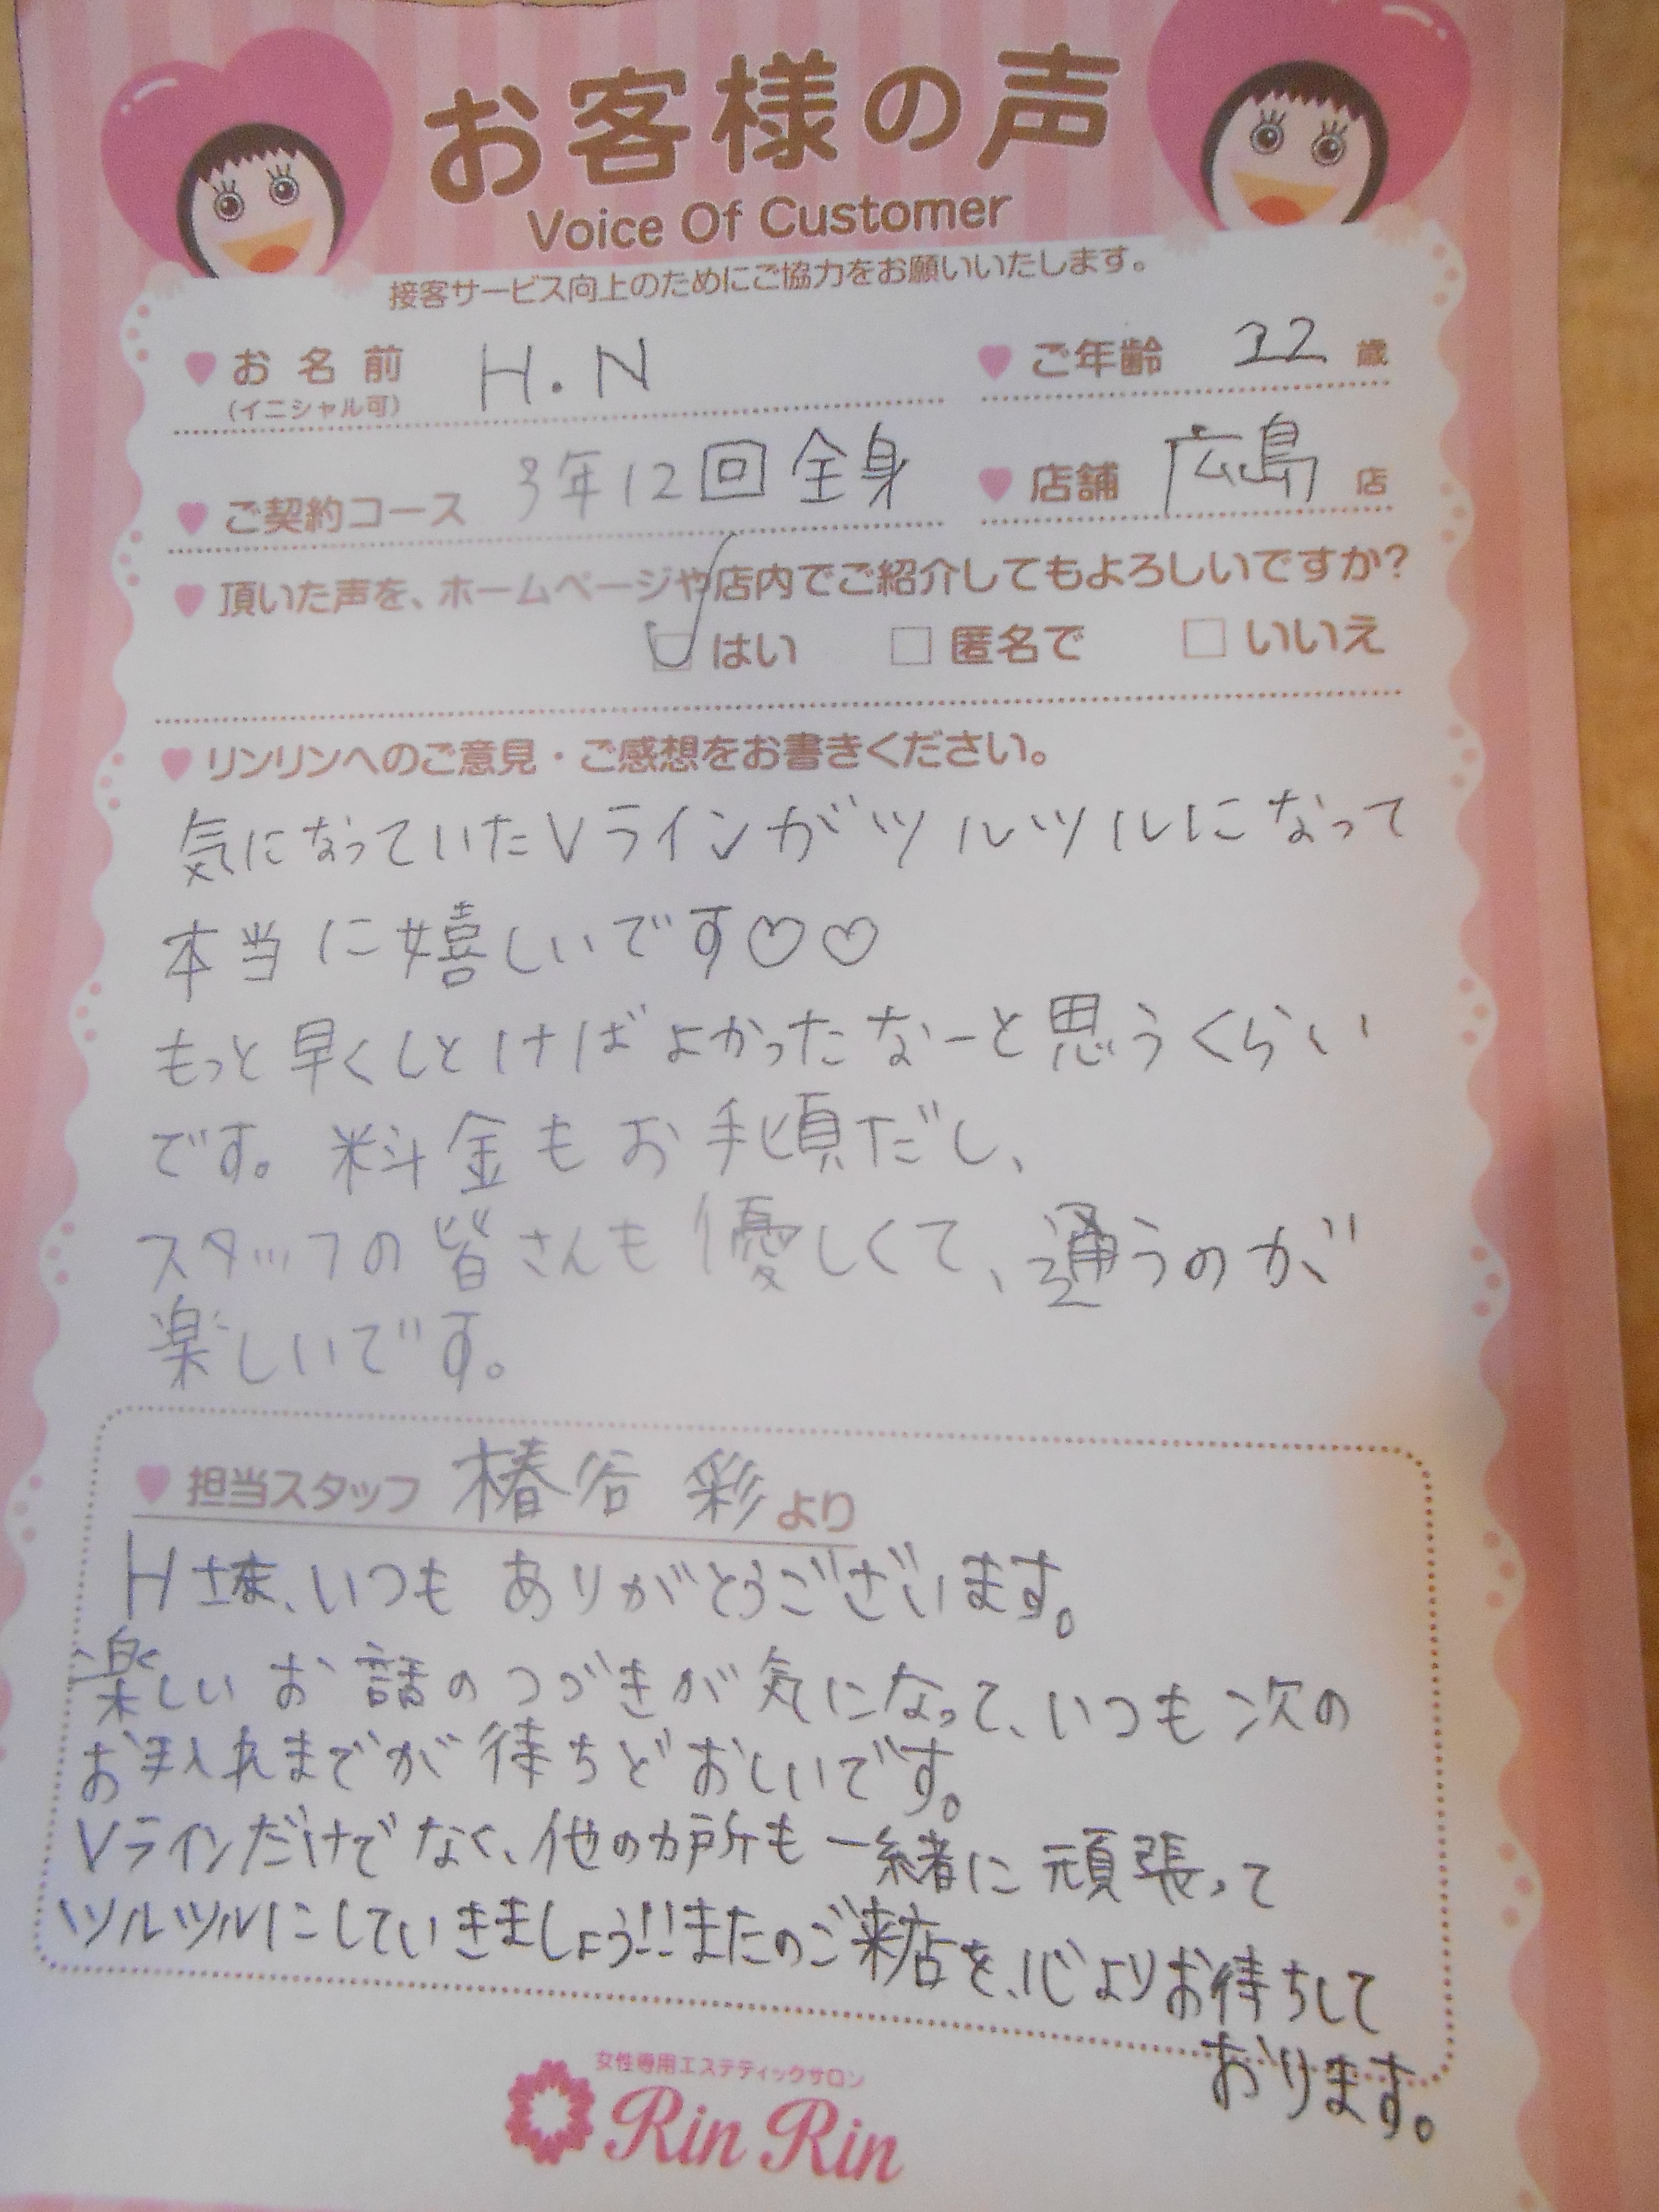 お客様の声
Voice Of Customer
接客サービス向上のためにご協力をお願いいたします。
お名前 H.N ご年齢 22 歳
(イニシャル可)
ご契約コース 3年12回全身 店舗 広島 店
頂いた声を、ホームページや店内でご紹介してもよろしいですか?
はい 匿名で いいえ
リンリンへのご意見・ご感想をお書きください。
気になっていたVラインがツルツルになって
本当に嬉しいです♡♡
もっと早くしとけばよかったなーと思うくらい
です。料金もお手頃だし、
スタッフの皆さんも優しくて、通うのが
楽しいです。
担当スタッフ 椿谷 彩より
H様、いつもありがとうございます。
楽しいお話のつづきが気になって、いつも次の
お手入れまでが待ちどおしいです。
Vラインだけでなく、他のカ所も一緒に頑張って
ツルツルにしていきましょう!!またのご来店を、心よりお待ちして
おります。
女性専用エステティックサロン
Rin Rin